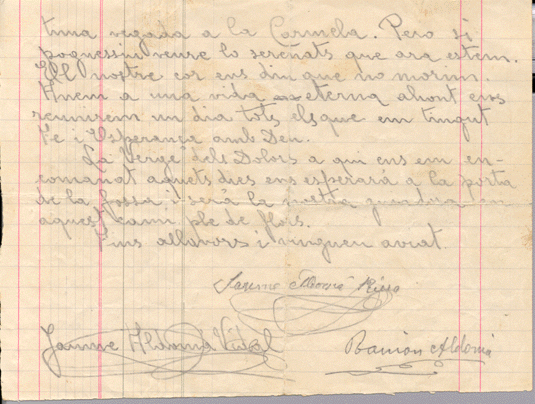 tima vegada a la Carmela. Pero si
poguessiu veure lo serenats que ara estem.
El nostre cor ens diu que no morim.
Anem a una vida eterna ahont ens
reunirem un dia tots els que em tingut
Fe i Esperança amb Deu.
La Verge dels Dolors a qui ens em en-
comanat aquets dies ens esperará a la porta
de la fossa, i será la nostra en
aquest camí ple de flors.
Fins allavors i ninguen aviat
Jaume Aldomá
Jaume Aldomá Vidal
Ramón Aldomá